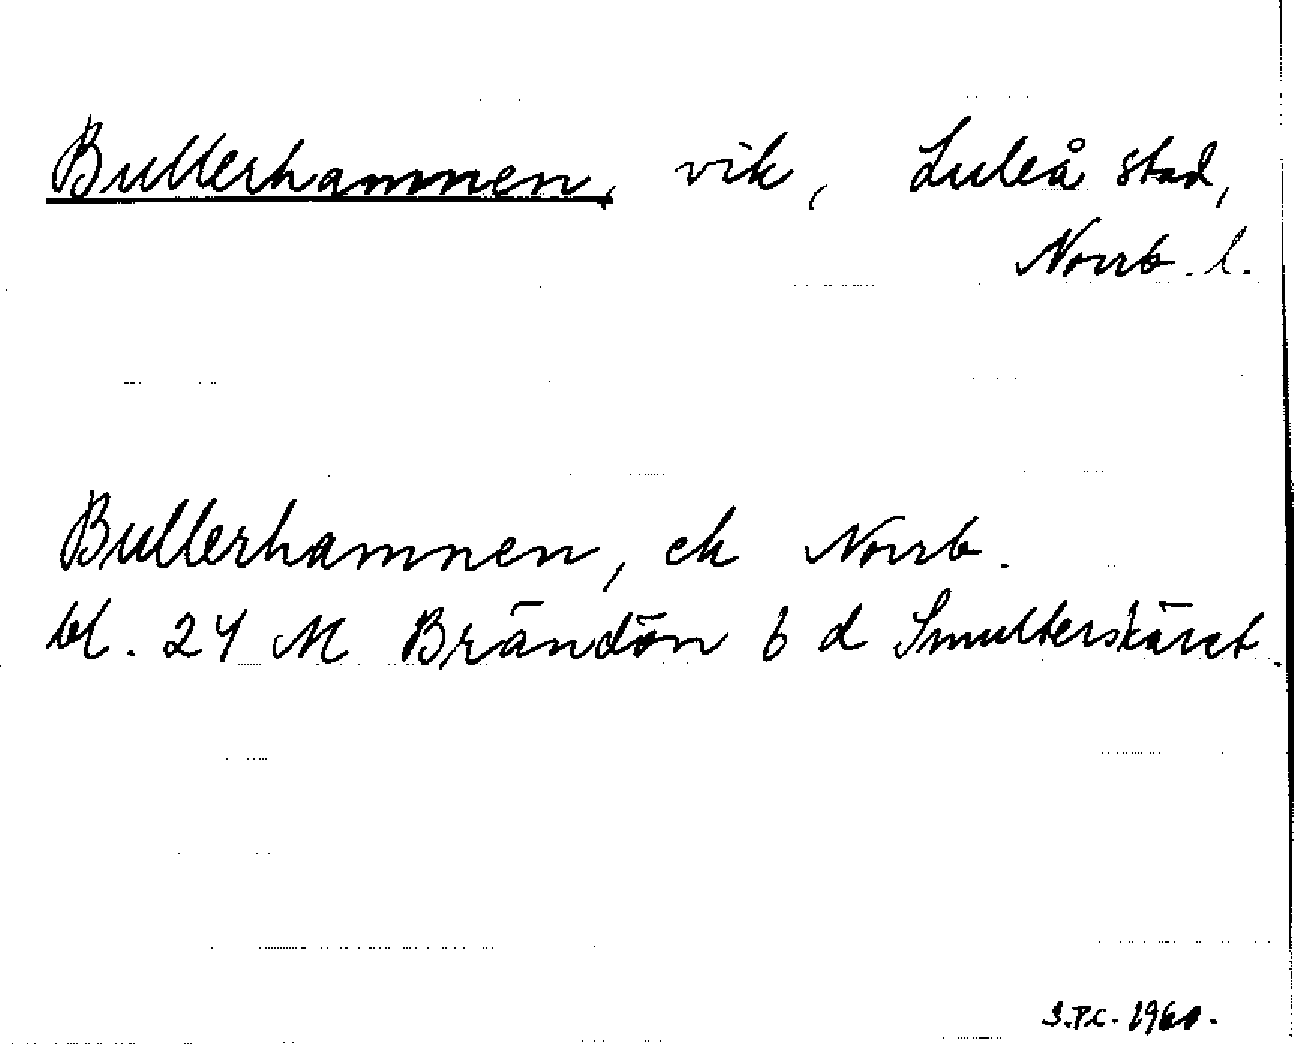 Bullerhamnen, vik, Luleå stad,
Norrb. l.
Bullerhamnen, ek Norrb.
bl. 24 M Brändön 6 d Smulterskäret.
S.P.C. 1960.